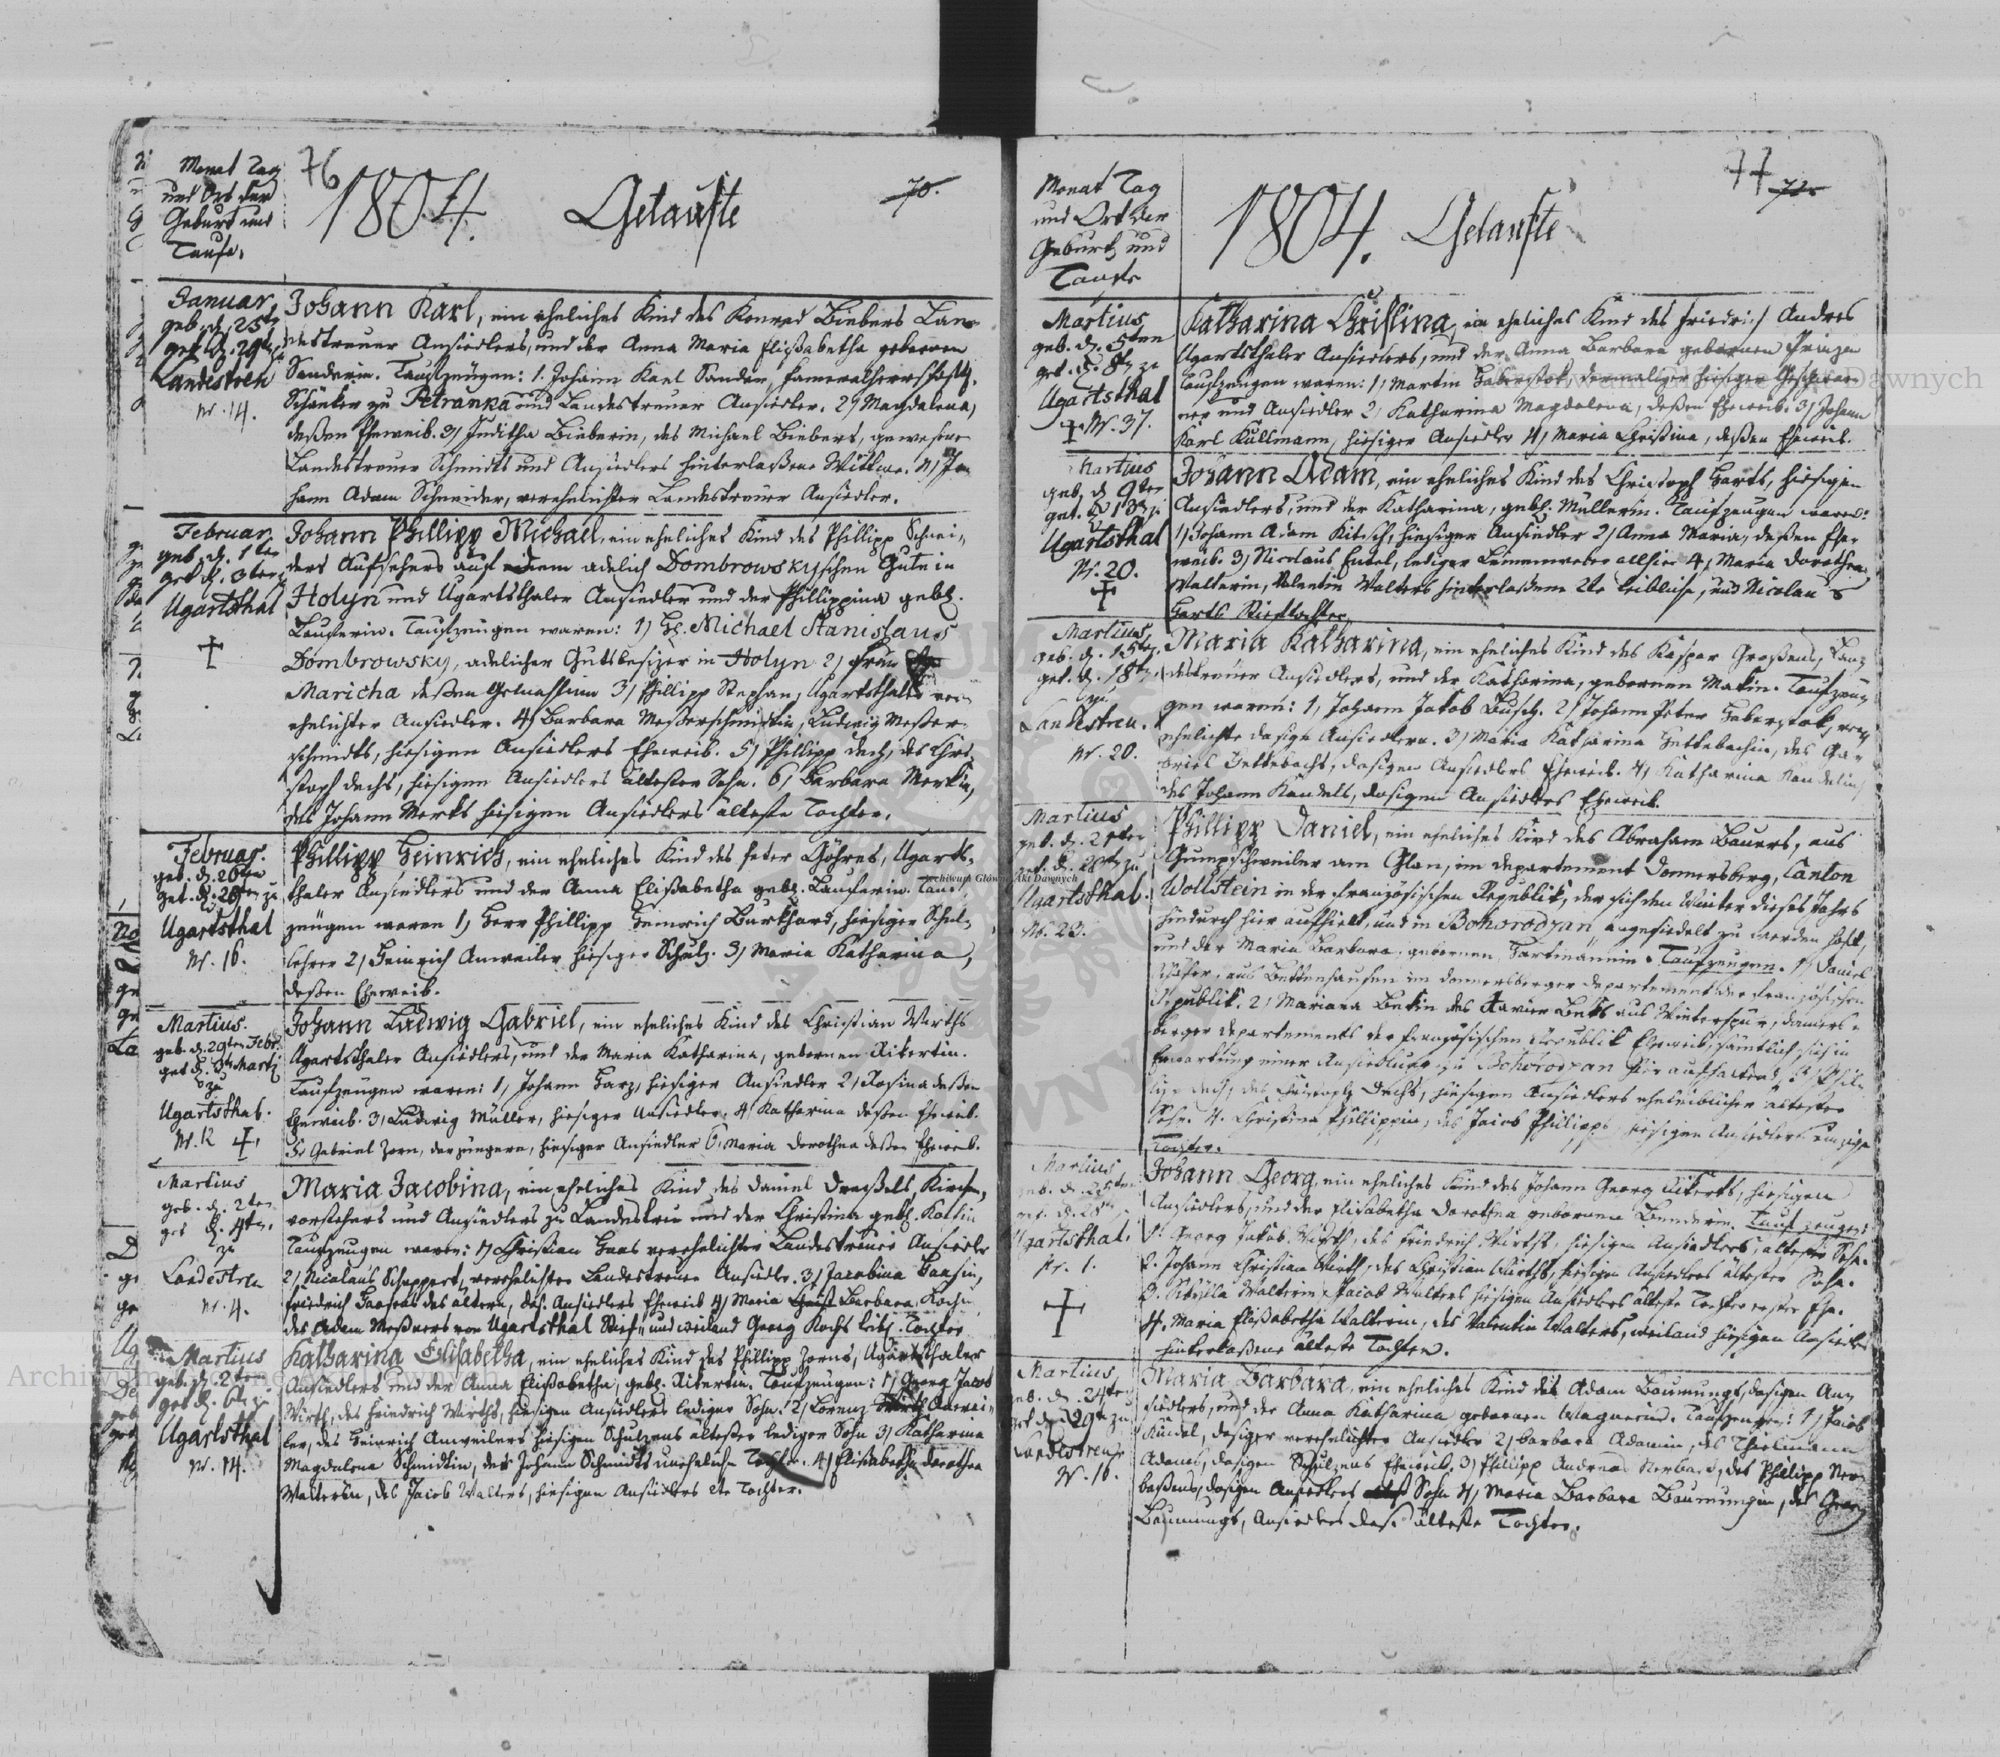 76
1804. Getaufte
70.
Monat Tag
und Ort der
Geburt und
Taufe.
Januar
geb. d. 25ten
get. d. 29ten zu
Landestreu
Nr. 14.
Johann Karl, ein eheliches Kind des Konrad Biebers Lan-
destreuer Ansiedlers, und der Anna Maria Elisabetha gebornen
Sanderin. Taufzeugen: 1. Johann Karl Sander,
Schänker zu Petranka und Landestreuer Ansiedler. 2) Magdalena,
deßen Eheweib. 3) Juditha Bieberin, des Michael Biebers, gewesene
Landestreuer Schmidts und Ansiedlers hinterlaßene Wittwe. 4) Jo-
hann Adam Schneider, verehelichter Landestreuer Ansiedler.
Februar
geb. d. 1ten
get. d. 3ten zu
Ugartsthal
Johann Phillipp Michael, ein eheliches Kind des Phillipp Schnei-
ders Aufsehers auf dem adelich Dombrowskyschen Gute in
Holyn und Ugartsthaler Ansiedler und der Phillippina geb.
Lauferin. Taufzeugen waren: 1) H. Michael Stanislaus
Dombrowsky, adelicher Gutsbesizer in Holyn 2) Frau
Maricha deßen Gemahlinn 3) Phillipp Stephan, Ugartsthaler ver-
ehelichter Ansiedler. 4) Barbara Meßerschmidtin, Ludwig Meßer-
schmidts, hiesigen Ansiedlers Eheweib. 5) Phillipp Dech, des Chri-
stoph Dechs, hiesigen Ansiedlers ältester Sohn. 6) Barbara Merkin,
des Johann Merks hiesigen Ansiedlers älteste Tochter.
Februar.
geb. d. 26ten
get. d. 29ten zu
Ugartsthal
Nr. 16.
Phillipp Heinrich, ein eheliches Kind des Peter Göhres, Ugarts-
thaler Ansiedlers und der Anna Elisabetha geb. Lauferin. Tauf-
zeugen waren 1) Herr Phillipp Heinrich Burkhard, hiesiger Schul-
lehrer 2) Heinrich Anweiler hiesiger Schulz. 3) Maria Katharina,
deßen Eheweib.
Martius.
geb. d. 29ten Febr.
get. d. 3ten Martz
zu
Ugartsthal.
Nr. 12
Johann Ludwig Gabriel, ein eheliches Kind des Christian Wirths
Ugartsthaler Ansiedlers, und der Maria Katharina, gebornen Aikertin.
Taufzeugen waren: 1) Johann Harz, hiesiger Ansiedler 2) Rosina deßen
Eheweib. 3) Ludwig Müller, hiesiger Ansiedler. 4) Katharina deßen Eheweib.
5. Gabriel Zorn, der jüngere, hiesiger Ansiedler 6. Maria Dorothea deßen Eheweib.
Martius
geb. d. 2ten
get. d. 4ten.
zu
Landestreu
Nr. 4.
Maria Jacobina, ein eheliches Kind des Daniel Drexßels, Kirchen-
vorstehers und Ansiedlers zu Landestreu und der Christina geb. Koltin
Taufzeugen waren: 1) Christian Haas verehelichter Landestreuer Ansiedler
2) Nicolaus Scheppert, verehelichter Landestreuer Ansiedler. 3) Jacobina Haasin,
Friedrich Haasens des ältern, das. Ansiedlers Eheweib 4) Maria Barbara Kochin
des Adam Meßners von Ugartsthal Stief- und weiland Georg Kochs leibl. Tochter
Martius
geb. d. 2ten
get. d. 6ten zu
Ugartsthal
Nr. 14.
Katharina Elisabetha, ein eheliches Kind des Phillipp Zorns, Ugartsthaler
Ansiedlers und der Anna Elisabetha, geb. Aikertin. Taufzeugen: 1) Georg Jacob
Wirth, des Friedrich Wirths, hiesigen Ansiedlers lediger Sohn. 2) Lorenz Anwei-
ler, des Heinrich Anweilers hiesigen Schulzens ältester lediger Sohn 3) Katharina
Magdalena Schmidtin, des Johann Schmidts uneheliche Tochter. 4) Elisabetha Dorothea
Walterin, des Jacob Walters, hiesigen Ansiedlers 2te Tochter.
77
72.
1804. Getaufte
Monat Tag
und Ort der
Geburt und
Taufe
Martius
geb. d. 5ten
get. d. 8ten zu
Ugartsthal
Nr. 37.
Katharina Christina, ein eheliches Kind des Friedrich Andres
Ugartsthaler Ansiedlers, und der Anna Barbara gebornen Prinzin
Taufzeugen waren: 1) Martin Haberstok, dermaliger hiesiger Geschwor-
ner und Ansiedler 2) Katharina Magdalena, deßen Eheweib. 3) Johann
Karl Kullmann, hiesiger Ansiedler 4) Maria Christina, deßen Eheweib.
Martius
geb. d. 9ten
get. d. 13ten zu
Ugartsthal
Nr. 20.
Johann Adam, ein eheliches Kind des Christoph Harts, hiesigen
Ansiedlers, und der Katharina, geb. Müllerin. Taufzeugen waren:
1) Johann Adam Kitsch, hiesiger Ansiedler 2) Anna Maria, deßen Ehe-
weib. 3) Nicolaus, lediger Leinenweber allhier 4) Maria Dorothea
Walterin, Valentin Walters hinterlaßene 2te leibliche, und Nicolaus
Harts Stieftochter
Martius
geb. d. 15ten
get. d. 18ten
zu
Landestreu.
Nr. 20.
Maria Katharina, ein eheliches Kind des Kaspar Großens, Lan-
destreuer Ansiedlers, und der Katharina, gebornen Makin. Taufzeu-
gen waren: 1) Johann Jakob Busch. 2) Johann Peter Haberstok, ver-
ehelichte dasige Ansiedlern. 3) Maria Katharina Hettebachin, des Ga-
briel Hettebachs, dasigen Ansiedlers Eheweib. 4) Katharina Kandelin,
des Johann Kandels, dasigen Ansiedlers Eheweib.
Martius
geb. d. 21ten
get. d. 28ten zu
Ugartsthal.
Nr. 23.
Phillipp Daniel, ein eheliches Kind des Abraham Bauers, aus
Gumpschweiler am Glan, im Departement Donnersberg, Canton
Wollstein in der französischen Republik, der sich den Winter dieses Jahrs
hindurch hier aufhielt, und in Bohorodzan angesiedelt zu werden hoft,
und der Maria Barbara gebornen Hartmännin. Taufzeugen. 1) Daniel
Schäfer, aus Bettenhausen im Donnersberger Departement der französischen
Republik. 2) Mariana Bekin des Xavier Beks aus Winterspur, Donners-
berger Departements der französischen Republik Eheweib, sämtlich sich in
Erwartung einer Ansiedlung zu Bohorodzan hier aufhaltend. 3) Phil-
lipp Dech, des Christoph Dechs, hiesigen Ansiedlers eheleiblicher ältester
Sohn. 4. Christina Phillippin, des Jacob Philipps hiesigen Ansiedlers einzige
Tochter.
Martius
geb. d. 25ten
get. d. 28ten
Ugartsthal.
Nr. 1.
Johann Georg, ein eheliches Kind des Johann Georg Aikerts, hiesigen
Ansiedlers, und der Elisabetha Dorothea gebornen Benderin. Taufzeugen:
1. Georg Jakob Wirth, des Friedrich Wirths, hiesigen Ansiedlers, ältester Sohn.
2. Johann Christian Wirth, des Christian Wirths, hiesigen Ansiedlers ältester Sohn.
3. Sibylla Walterin, Jacob Walters hiesigen Ansiedlers älteste Tochter erster Ehe.
4. Maria Elisabetha Walterin, des Valentin Walters, weiland hiesigen Ansiedlers
hinterlaßene älteste Tochter.
Martius
geb. d. 24ten
get. d. 29ten zu
Landestreu
Nr. 16.
Maria Barbara, ein eheliches Kind des Adam Baumungs, dasigen An-
siedlers, und der Anna Katharina gebornen Wagnerin. Taufzeugen: 1) Jacob
Kindel, dasiger verehelichter Ansiedler 2) Barbara Adamin, des Thielmann
Adams, dasigen Schulzens Eheweib, 3) Phillipp Andreas Nerbas, des Phillipp Ner-
baßens, dasigen Ansiedlers Sohn 4) Maria Barbara Baumungin, des Georg
Baumungs, Ansiedlers das. älteste Tochter.
Archiwum Główne Akt Dawnych